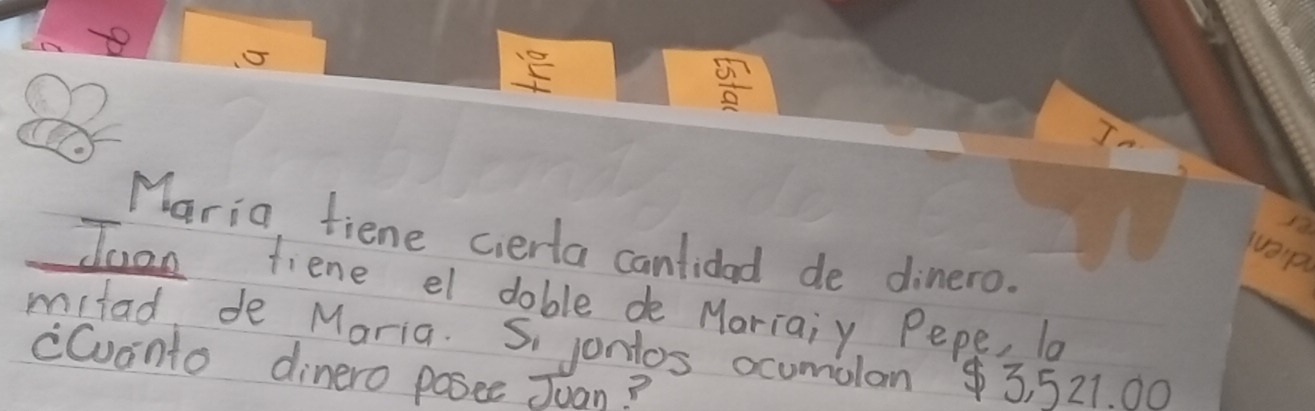 Esta
Maria tiene cierta cantidad de dinero.
Juan tiene el doble de Maria; y Pepe, la
mitad de Maria. Si juntos acumulan $3,521.00
¿Cuánto dinero posee Juan?